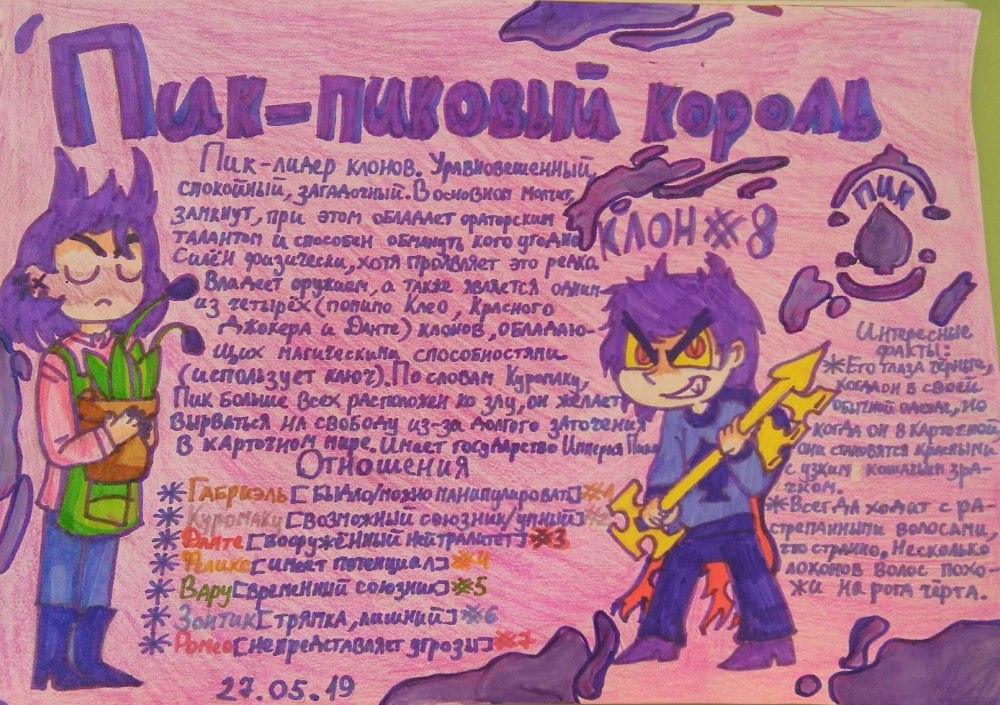 Пик-пиковый король
Пик-лидер клонов. Уравновешенный,
спокойный, загадочный. В основном молчит,
замкнут, при этом обладает ораторским
талантом и способен обмануть кого угодно
Силён физически, хотя проявляет это редко
Владеет оружием, а также является одним
из четырёх (помимо Клео, Красного
Джокера и Данте) клонов, обладаю-
щих магическими способностями
(использует ключ). По словам Куромаку,
Пик больше всех расположен ко злу, он желает
вырваться на свободу из-за долгого заточения
в карточном мире. Имеет государство Империя Пика
Отношения
*Габриэль [было/можно манипулировать] #1
*Куромаку [возможный союзник/умный] #2
*Данте [вооружённый нейтралитет] #3
*Феликс [имеет потенциал] #4
*Вару [временный союзник] #5
*Зонтик [тряпка, лишний] #6
*Ромео [не представляет угрозы] #7
27.05.19
КЛОН #8
ПИК
Интересные
факты:
*Его глаза чёрные,
когда он в своей
обычной одежде, но
когда он в карточной
они становятся красными
с узким кошачьим зра-
чком.
*Всегда ходит с ра-
стрепанными волосами,
что странно, несколько
локонов волос похо-
жи на рога чёрта.